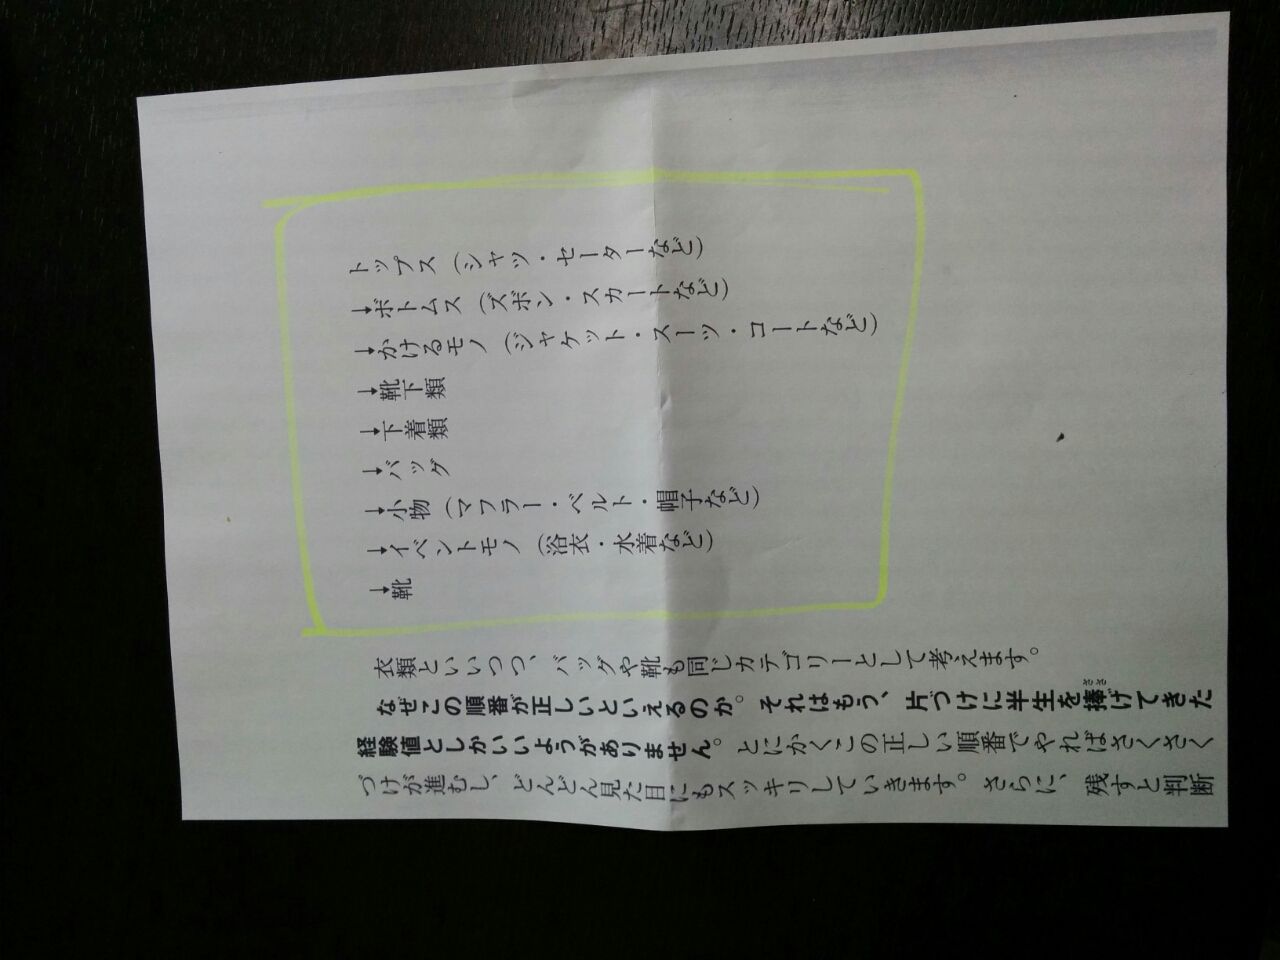 トップス（シャツ・セーターなど）
→ボトムス（ズボン・スカートなど）
→かけるモノ（ジャケット・スーツ・コートなど）
→靴下類
→下着類
→バッグ
→小物（マフラー・ベルト・帽子など）
→イベントモノ（浴衣・水着など）
→靴
衣類といいつつ、バッグや靴も同じカテゴリーとして考えます。
なぜこの順番が正しいといえるのか。それはもう、片づけに半生を捧げてきた
経験値としかいいようがありません。とにかくこの正しい順番でやればさくさく
づけが進むし、どんどん見た目にもスッキリしていきます。さらに、残すと判断